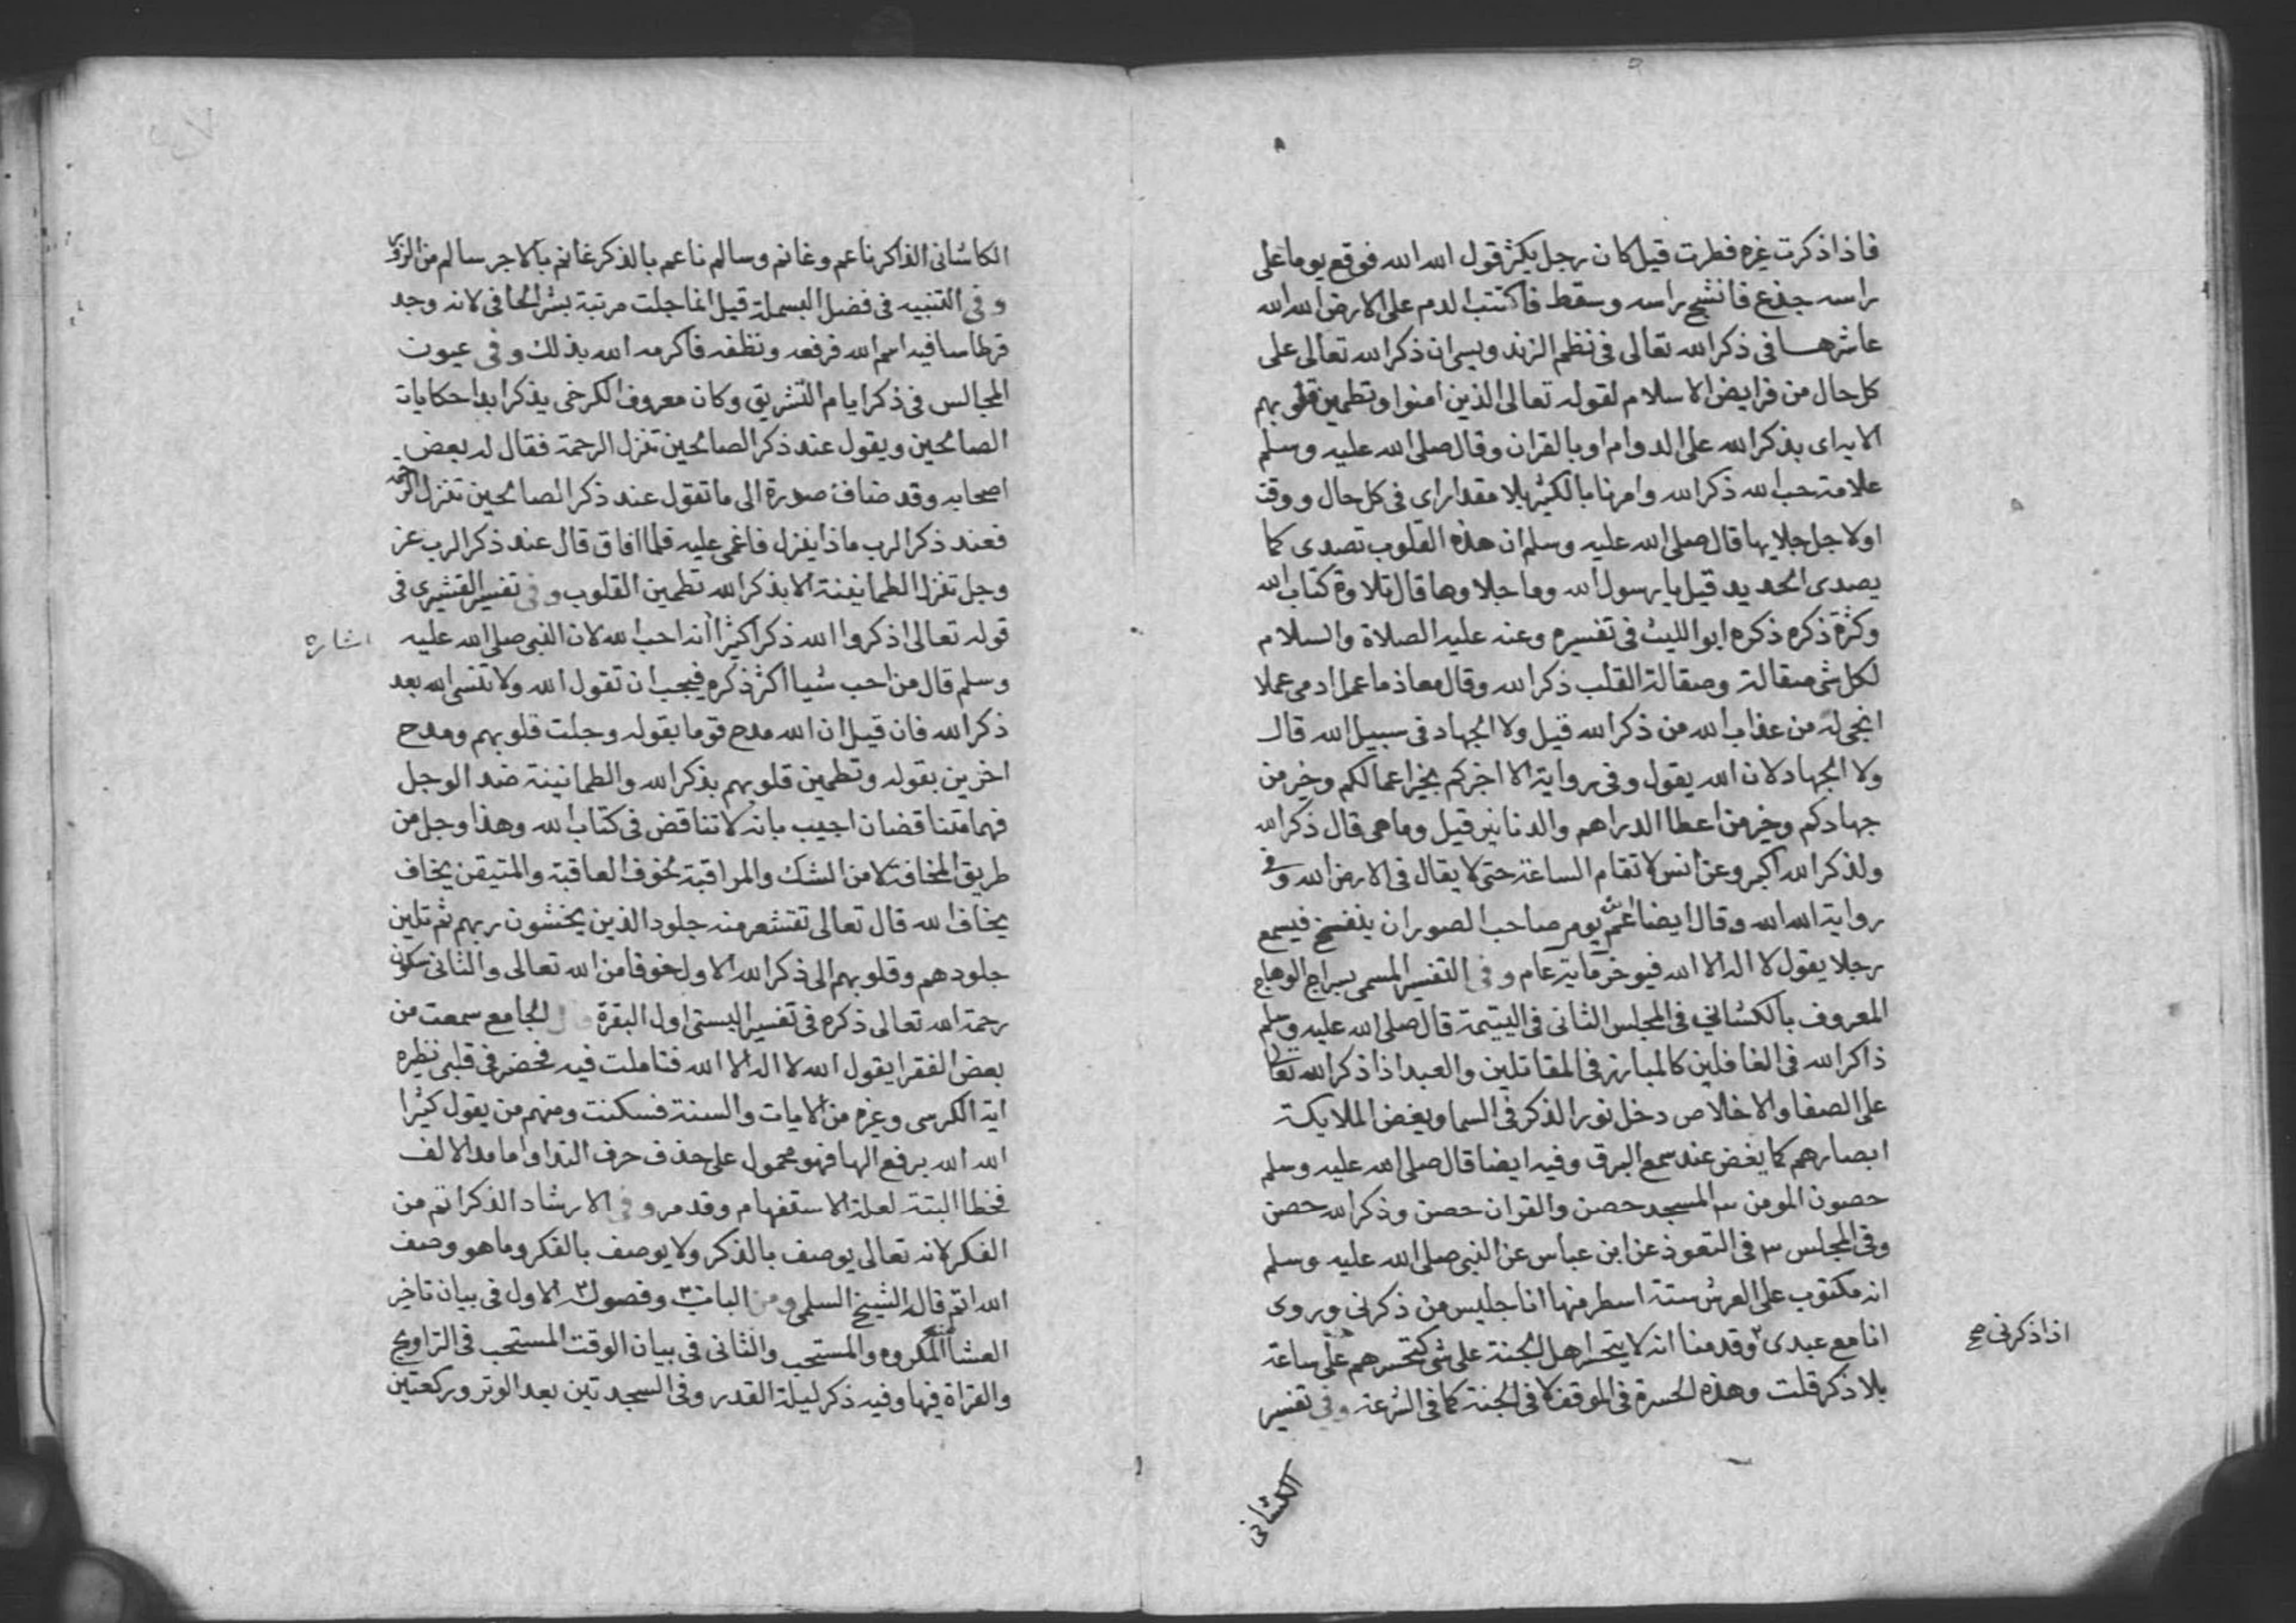 فاذا ذكرت غيره فطرت قيل كان رجل يكثر قول الله الله فوقع يوما على
راسه جذع فانشج راسه وسقط فاكتتب الدم على الارض الله الله
عاشرها في ذكر الله تعالى في نظم الزند ويسي ان ذكر الله تعالى على
كل حال من فرايض الاسلام لقوله تعالى الذين امنوا وتطمين قلوبهم
الايه اى بذكر الله على الدوام او بالقران وقال صلى الله عليه وسلم
علامة حب الله ذكر الله وامرنا بالكثير بلا مقدار اى في كل حال ووقت
اولاجل جلايها قال صلى الله عليه وسلم ان هذه القلوب تصدى كما
يصدى الحديد قيل يا رسول الله وما جلاوها قال تلاوة كتاب الله
وكثرة ذكره ذكره ابو الليث في تفسيره وعنه عليه الصلاة والسلام
لكل شى صقالة وصقالة القلب ذكر الله وقال معاذ ما عمل ادمى عملا
انجى له من عذاب الله من ذكر الله قيل ولا الجهاد في سبيل الله قال
ولا الجهاد لان الله يقول وفي رواية الا اخبركم بخير اعمالكم وخير من
جهادكم وخير من اعطا الدراهم والدنانير قيل وما هى قال ذكر الله
ولذكر الله اكبر وعن انس لا تقام الساعة حتى لا يقال في الارض الله وفى
رواية الله الله وقال ايضا يوم صاحب الصور ان ينفخ فيسمع
رجلا يقول لا اله الا الله فيوخر ماية عام وفي التفسير المسمى بسراج الوهاج
المعروف بالكشاني في المجلس الثانى في اليتيمة قال صلى الله عليه وسلم
ذاكر الله في الغافلين كالمبارز في المقاتلين والعبد اذا ذكر الله تعالى
على الصفا والاخلاص دخل نور الذكر في السما ويغض الملايكة
ابصارهم كما يغض عند سمع البرق وفيه ايضا قال صلى الله عليه وسلم
حصون المومن ٣ المسجد حصن والقران حصن وذكر الله حصن
وفي المجلس ٣ في التعوذ عن ابن عباس عن النبى صلى الله عليه وسلم
انه مكتوب على العرش ستة اسطر منها انا جليس من ذكرنى وروى
انا مع عبدى وقدمنا انه لا يتحسر اهل الجنة على شى كتحسرهم على ساعة
اذا ذكرنى صح
بلا ذكر قلت وهذه الحسرة في الموقف لا في الجنة كما في الشرعة وفي تفسير
الكشانى
الكاشانى الذاكر ناعم وغانم وسالم ناعم بالذكر غانم بالاجر سالم من الوزر
وفي التنبيه في فضل البسملة قيل انما جلت مرتبة بشر الحافى لانه وجد
قرطاسا فيه اسم الله فرفعه ونظفه فاكرمه الله بذلك وفي عيون
المجالس في ذكر ايام التشريق وكان معروف الكرخى يذكر ابدا حكايات
الصالحين ويقول عند ذكر الصالحين تنزل الرحمة فقال له بعض
اصحابه وقد ضاف صدرة الى ما تقول عند ذكر الصالحين تنزل الرحمة
فعند ذكر الرب ماذا ينزل فاغمى عليه فلما افاق قال عند ذكر الرب عز
وجل تنزل الطمانينة الا بذكر الله تطمين القلوب وفي تفسير القشيرى في
قوله تعالى اذكروا الله ذكرا كثيرا انه احب الله لان النبى صلى الله عليه
اشارة
وسلم قال من احب شيا اكثر ذكره فيجب ان تقول الله ولا تنسى الله بعد
ذكر الله فان قيل ان الله مدح قوما بقوله وجلت قلوبهم ومدح
اخرين بقوله وتطمين قلوبهم بذكر الله والطمانينة ضد الوجل
فهما متناقضان اجيب بانه لا تناقض في كتاب الله وهذا وجل من
طريق المخافة لا من الشك والمراقبة لخوف العاقبة والمتيقن يخاف
يخاف الله قال تعالى تقشعر منه جلود الذين يخشون ربهم ثم تلين
جلودهم وقلوبهم الى ذكر الله الاول خوفا من الله تعالى والثانى سكون
رحمة الله تعالى ذكره في تفسير البستى اول البقرة قال الجامع سمعت من
بعض الفقرا يقول الله لا اله الا الله فتاملت فيه فحضر في قلبى نظيره
اية الكرسى وغيره من الايات والسنة فسكنت ومنهم من يقول كثيرا
الله الله برفع الها فهو محمول على حذف حرف الندا واما مد الالف
فخطا البتة لعلة الاستفهام وقد مر وفي الارشاد الذكر اتم من
الفكر لانه تعالى يوصف بالذكر ولا يوصف بالفكر وما هو وصف
الله اتم قاله الشيخ السلمى ومن الباب ٣ وفصوله ٣ الاول في بيان تاخير
العشا المكروه والمستحب والثانى في بيان الوقت المستحب في التراويح
والقراة فيها وفيه ذكر ليلة القدر وفى السجدتين بعد الوتر وركعتين